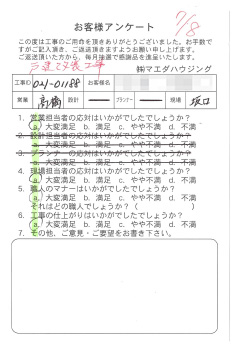 7/8
お客様アンケート
この度は工事のご用命を頂きありがとうございました。お手数で
すがご記入頂き、ご返送頂きますようお願い申し上げます。
ご返送頂いた方から、毎月抽選で感謝品を進呈いたします。
㈱マエダハウジング
工事ID 021-01188 お客様名
営業 高橋 設計 プランナー 現場 坂口
1. 営業担当者の応対はいかがでしたでしょうか?
a. 大変満足 b. 満足 c. やや不満 d. 不満
2. 設計担当者の応対はいかがでしたでしょうか?
a. 大変満足 b. 満足 c. やや不満 d. 不満
の応対はいかがでしたでしょうか?
a. 大変満足 b. 満足 c. やや不満 d. 不満
4. 現場担当者の応対はいかがでしたでしょうか?
a. 大変満足 b. 満足 c. やや不満 d. 不満
5. 職人のマナーはいかがでしたでしょうか?
a. 大変満足 b. 満足 c. やや不満 d. 不満
それはどの職人でしょうか?( )
6. 工事の仕上がりはいかがでしたでしょうか?
a. 大変満足 b. 満足 c. やや不満 d. 不満
7. その他、ご意見・ご要望をお書き下さい。